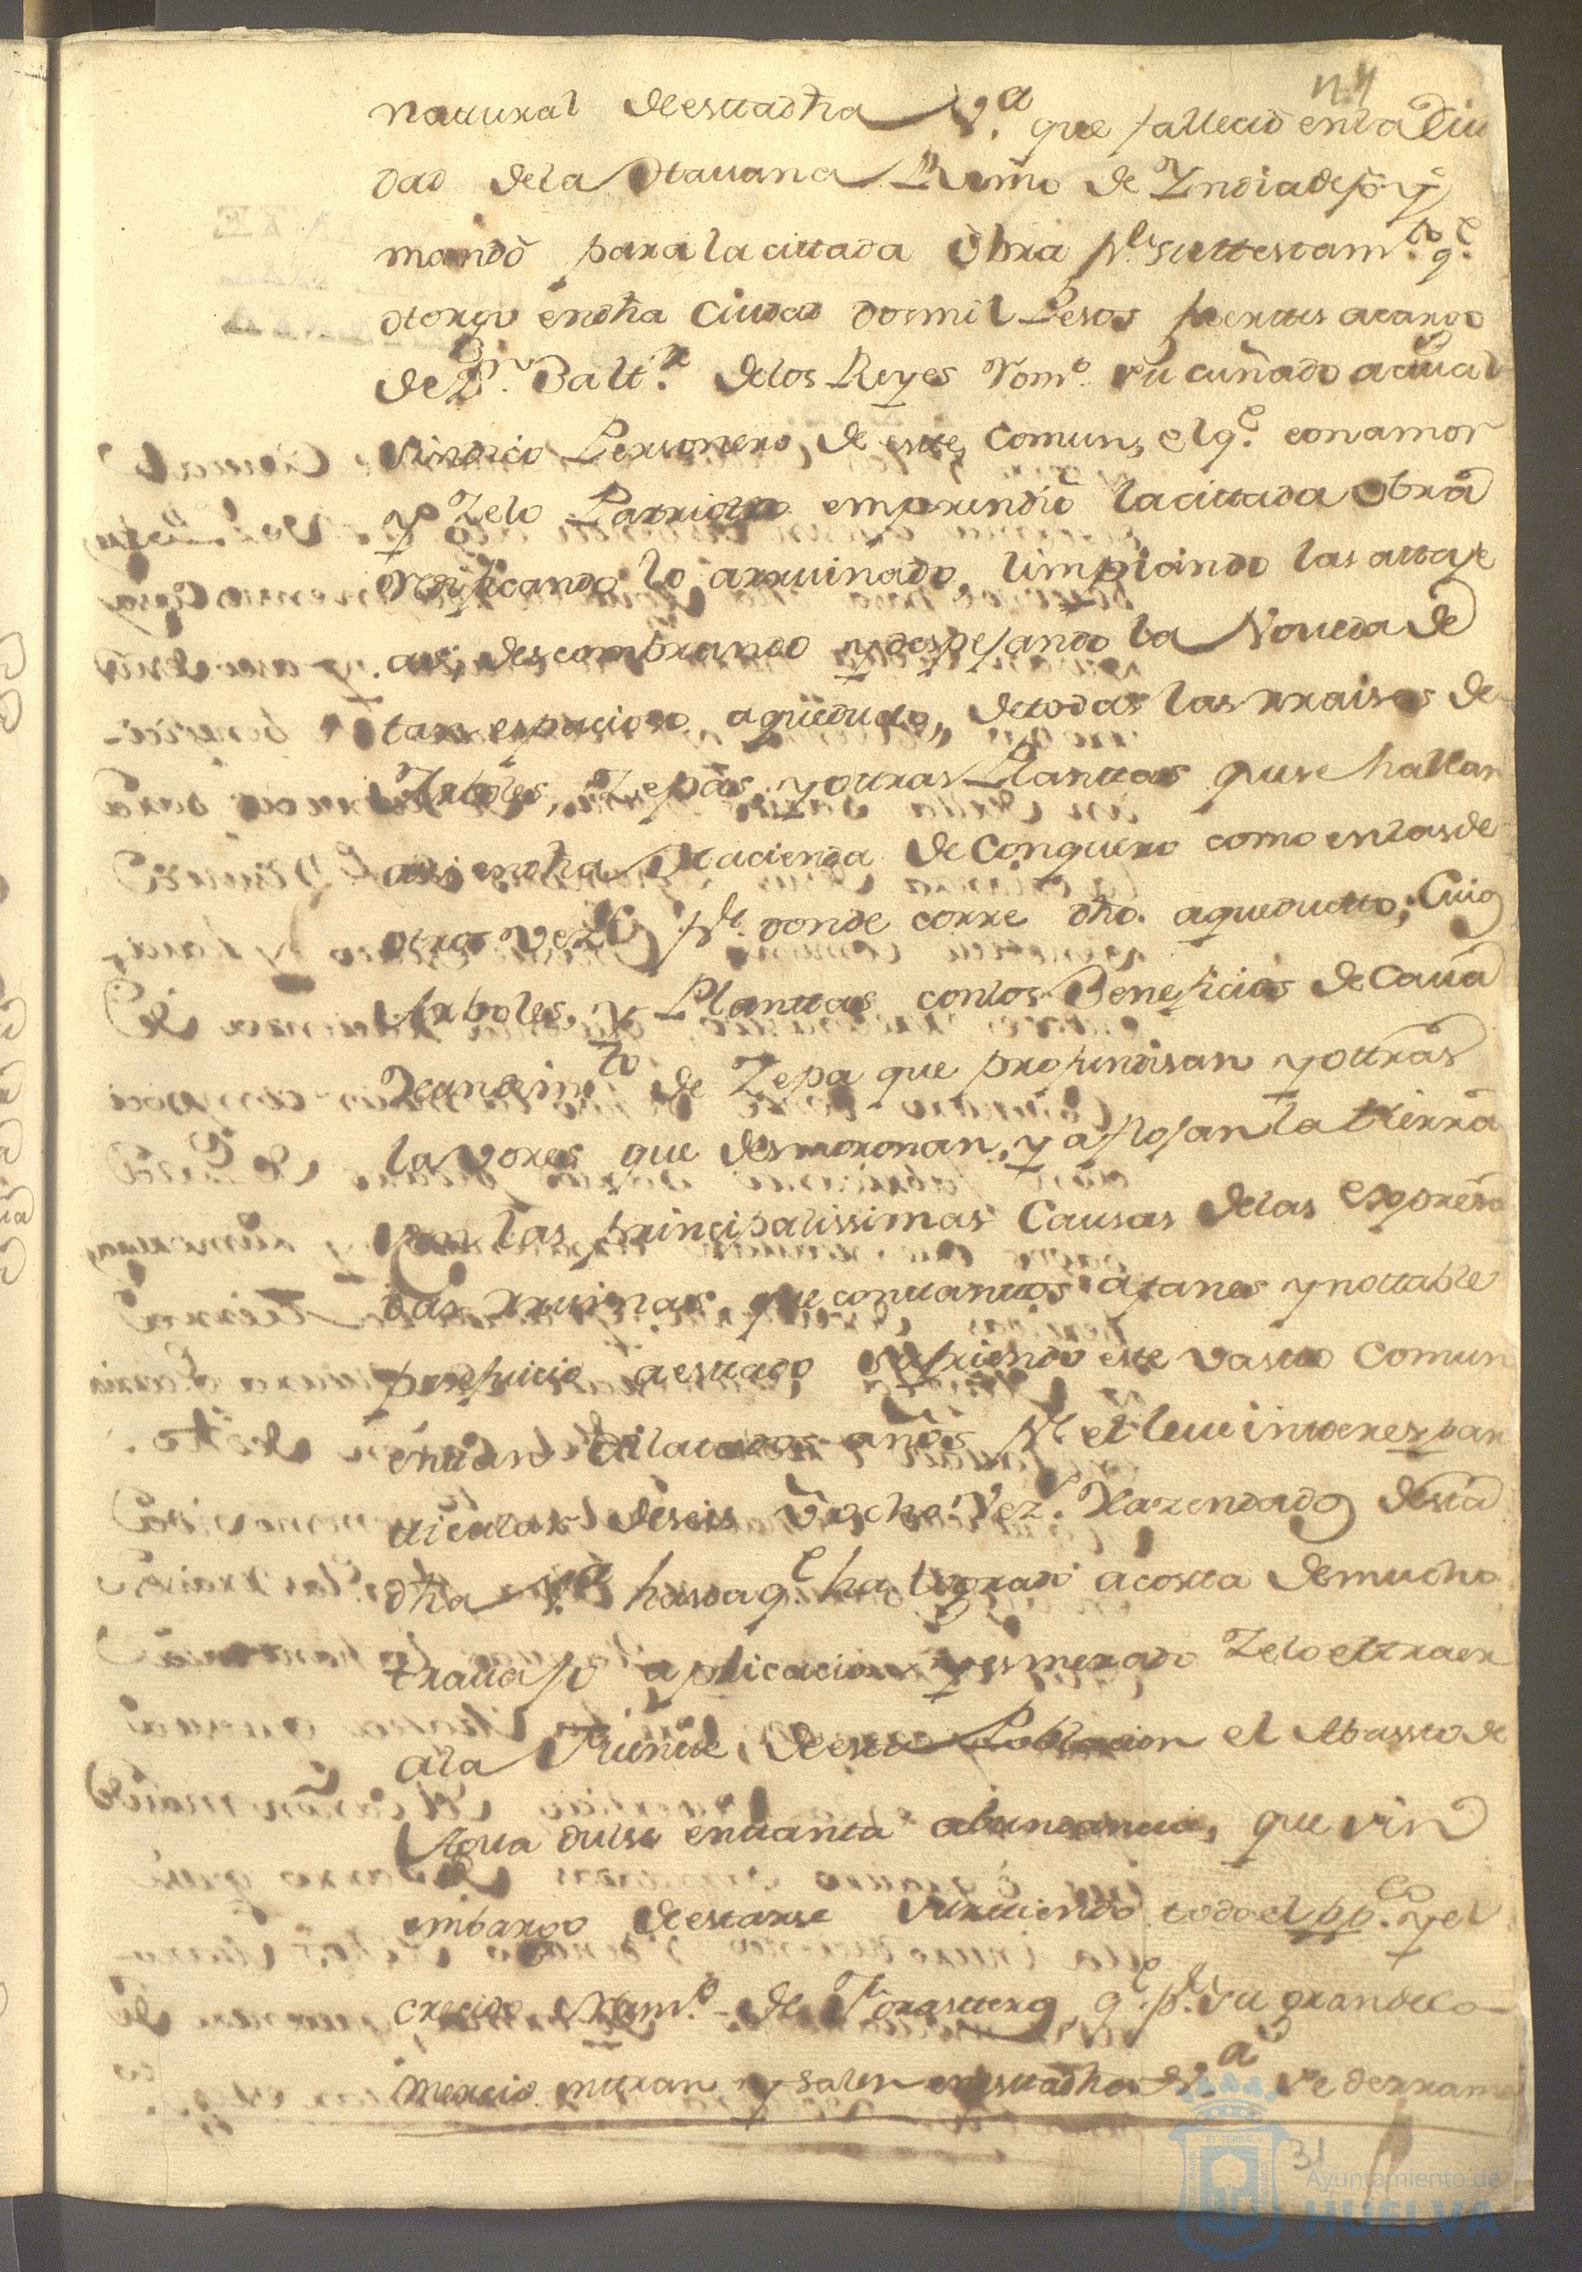 n. 4
natural de esta dha V.a que fallecio en la Ciu
dad de la Havana Reino de Indiadeso q.e
mandó para la cittada obra p.r su ttestam.to q.e
otorgó en dha Ciudad dos mil Pesos fuerttes a cargo
de D.n Balt.r de los Reyes Rom.o su cuñado actual
Sindico Personero, de este, Comun, el q.e con amor
y Zelo Patriotto emprendió la cittada obra
redificando lo arruinado, limpiando las attaje
as, descombrando y despejando la Boveda de
tan espacioso aqüeducto, de todas las rraises de
Arboles, Zepas, y otras Planttas que se hallan
asi en dha Hacienda de Conquero como en las de
otros Vez.s p.r donde corre dho. aqueductto; Cuios
Arboles, y Planttas con los Beneficios de Cava
Deandam.to de Zepa que profundisan y ottras
lavores que desmoronan, y aflojan la ttierra
son las principalissimas Causas de las expresa
das rruinas, que con ttanttos afanes y nottable
perjuicio a esttado sufriendo este vasto Comun
en ttan dilatados años p.r el leve intteres par
ticular de seis ú ocho Vez.s Hazendados de sta
dha V.a hasta q.e ha logrado a costa de mucho
travajo aplicacion y esmerado Zelo el traer
a la Fuente, de esta Poblacion el Abasto de
Agua dulse en tanta abundancia, que sin
embargo de estarse surttiendo todo el pp.co y el
crecido Num.o de Forasteros q.e p.r su grande co-
mercio entran y salen en estta dha V.a se derrama
31
Ayuntamiento de
HUELVA